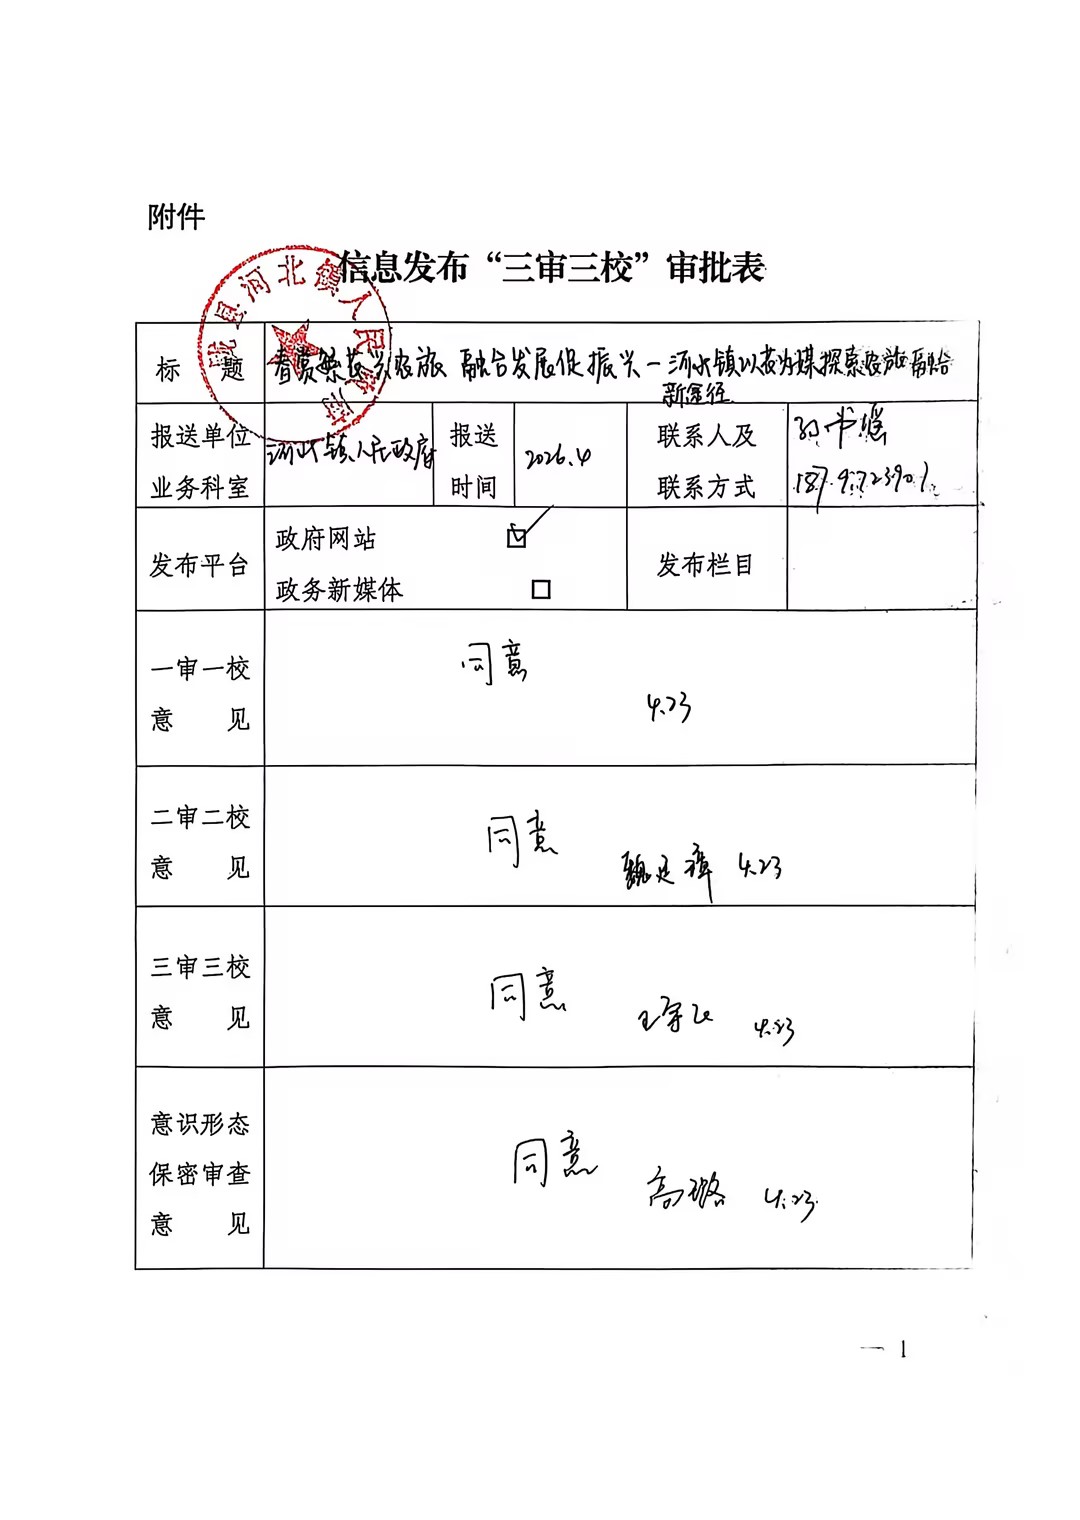 附件
信息发布“三审三校”审批表
县河北镇人民政府
标 题
春赏繁花兴农旅 融合发展促振兴—河北镇以花为媒探索农旅融合
新途径
报送单位
业务科室
河北镇人民政府
报送
时间
2026.4
联系人及
联系方式
发布平台
政府网站
政务新媒体
发布栏目
一审一校
意 见
同意
4.23
二审二校
意 见
同意
4.23
三审三校
意 见
同意
4.23
意识形态
保密审查
意 见
同意
高璐 4.23
一 1